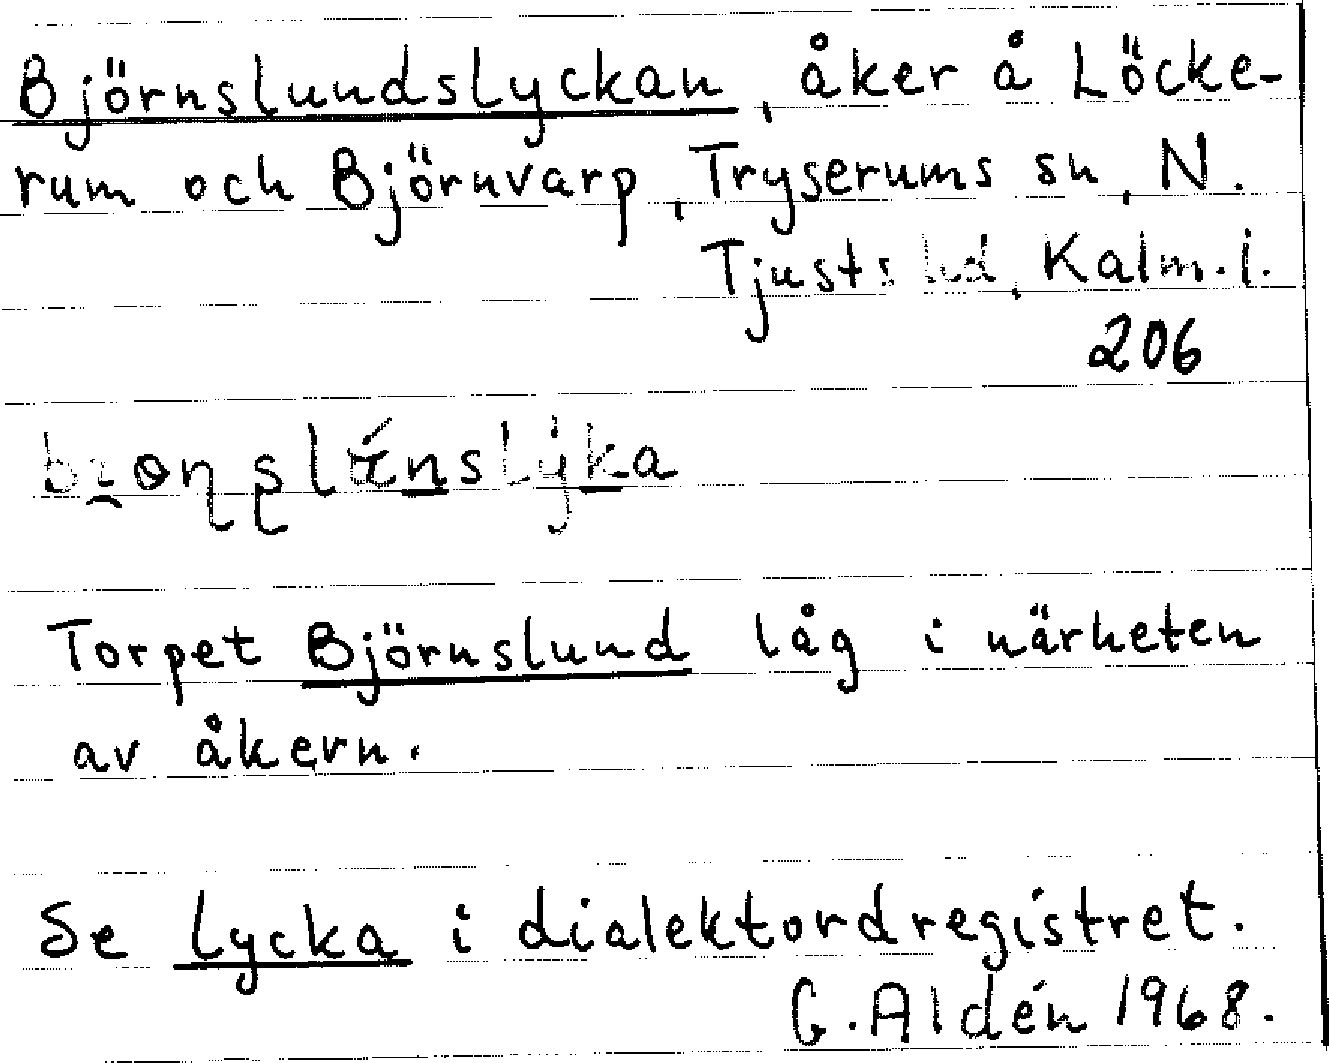 Björnslundslyckan, åker å Löcke-
rum och Björnvarp, Tryserums sn, N.
Tjusts hd, Kalm. l.
206
Torpet Björnslund låg i närheten
av åkern.
Se lycka i dialektordregistret.
G. Aldén 1968.